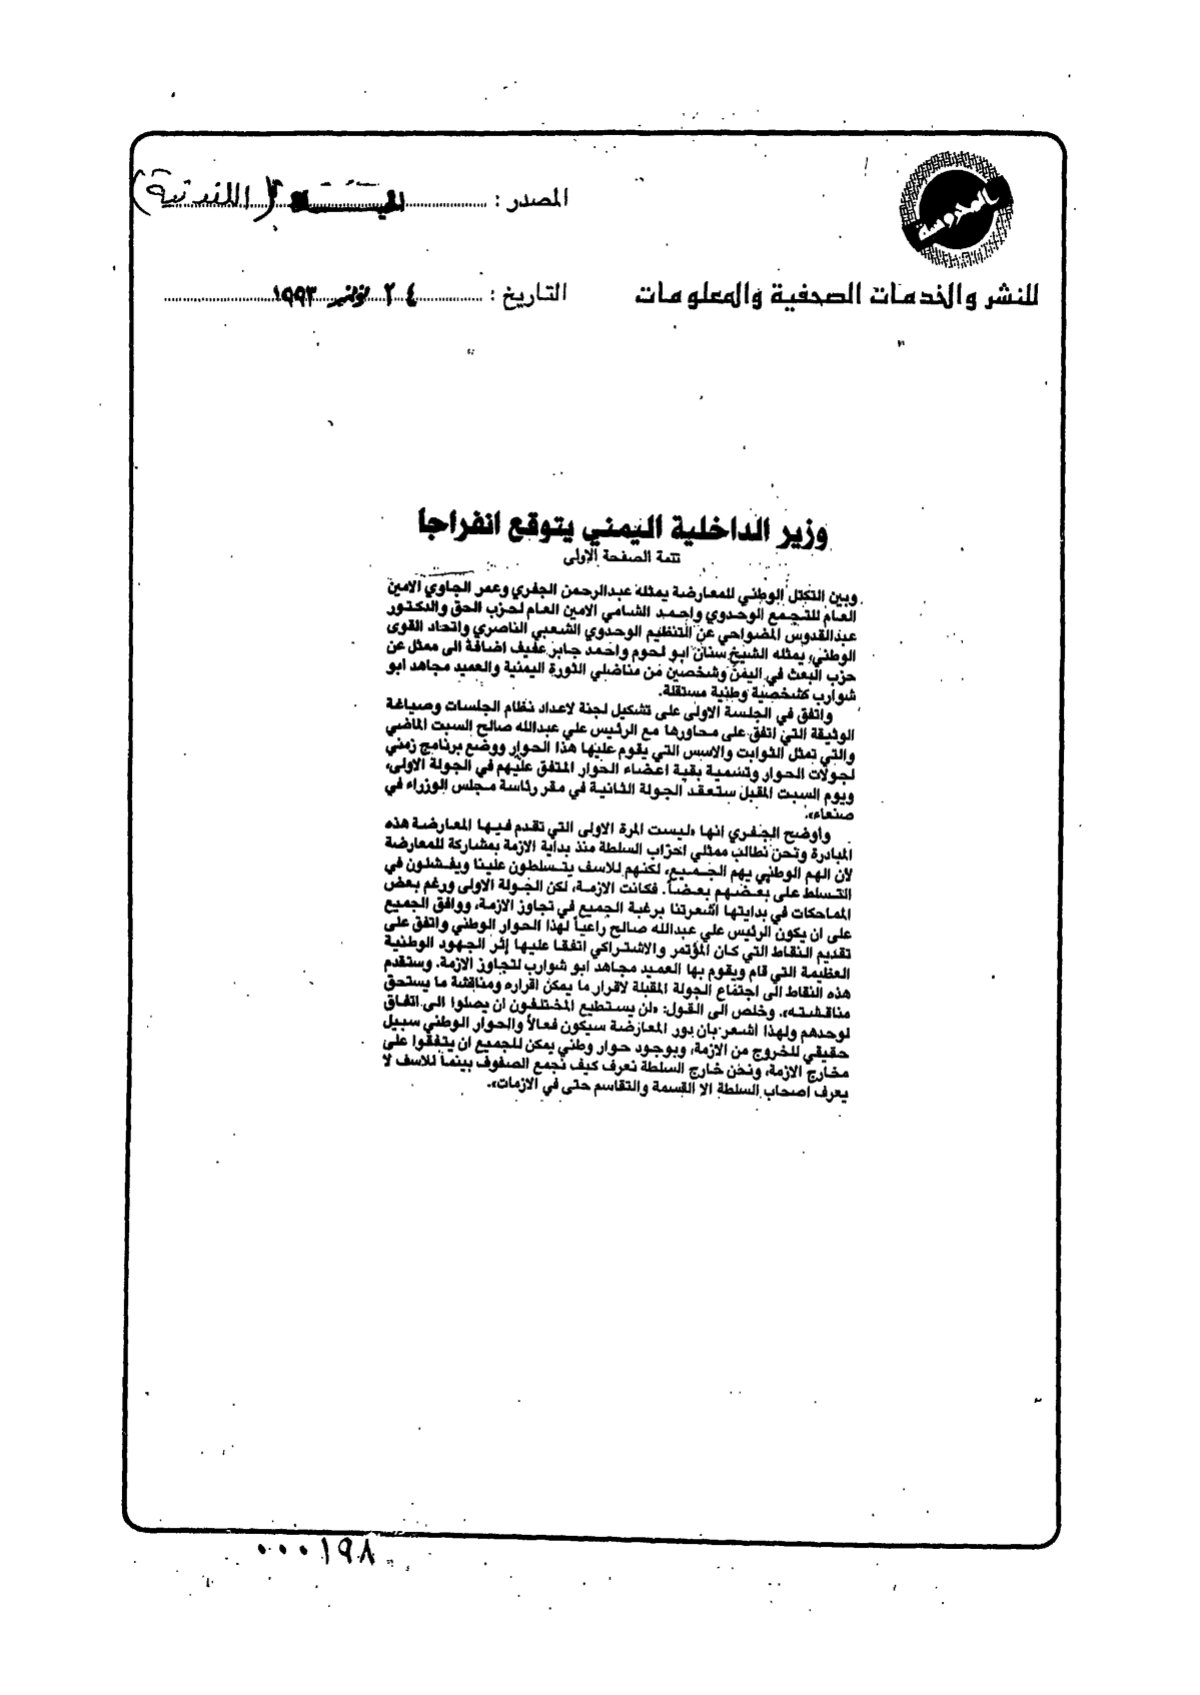 المحروسة
للنشر والخدمات الصحفية والمعلومات
المصدر : الحياة (اللندنية)
التاريخ : ٢٤ نوفمبر ١٩٩٣
وزير الداخلية اليمني يتوقع انفراجا
تتمة الصفحة الاولى
وبين التكتل الوطني للمعارضة يمثله عبدالرحمن الجفري وعمر الجاوي الامين
العام للتجمع الوحدوي واحمد الشامي الامين العام لحزب الحق والدكتور
عبدالقدوس المضواحي عن التنظيم الوحدوي الشعبي الناصري واتحاد القوى
الوطني، يمثله الشيخ سنان ابو لحوم واحمد جابر عفيف اضافة الى ممثل عن
حزب البعث في اليمن وشخصين من مناضلي الثورة اليمنية والعميد مجاهد ابو
شوارب كشخصية وطنية مستقلة.
واتفق في الجلسة الاولى على تشكيل لجنة لاعداد نظام الجلسات وصياغة
الوثيقة التي اتفق على محاورها مع الرئيس علي عبدالله صالح السبت الماضي
والتي تمثل الثوابت والاسس التي يقوم عليها هذا الحوار ووضع برنامج زمني
لجولات الحوار وتسمية بقية اعضاء الحوار المتفق عليهم في الجولة الاولى،
ويوم السبت المقبل ستعقد الجولة الثانية في مقر رئاسة مجلس الوزراء في
صنعاء».
واوضح الجفري انها «ليست المرة الاولى التي تقدم فيها المعارضة هذه
المبادرة ونحن نطالب ممثلي احزاب السلطة منذ بداية الازمة بمشاركة للمعارضة
لان الهم الوطني يهم الجميع، لكنهم للاسف يتسلطون علينا ويفشلون في
التسلط على بعضهم بعضاً. فكانت الازمة، لكن الجولة الاولى ورغم بعض
المماحكات في بدايتها اشعرتنا برغبة الجميع في تجاوز الازمة، ووافق الجميع
على ان يكون الرئيس علي عبدالله صالح راعياً لهذا الحوار الوطني واتفق على
تقديم النقاط التي كان المؤتمر والاشتراكي اتفقا عليها إثر الجهود الوطنية
العظيمة التي قام ويقوم بها العميد مجاهد ابو شوارب لتجاوز الازمة. وستقدم
هذه النقاط الى اجتماع الجولة المقبلة لاقرار ما يمكن اقراره ومناقشة ما يستحق
مناقشته». وخلص الى القول: «لن يستطيع المختلفون ان يصلوا الى اتفاق
لوحدهم ولهذا اشعر بان دور المعارضة سيكون فعالاً والحوار الوطني سبيل
حقيقي للخروج من الازمة، وبوجود حوار وطني يمكن للجميع ان يتفقوا على
مخارج الازمة، ونحن خارج السلطة نعرف كيف نجمع الصفوف بينما للاسف لا
يعرف اصحاب السلطة الا القسمة والتقاسم حتى في الازمات».
٠٠٠١٩٨